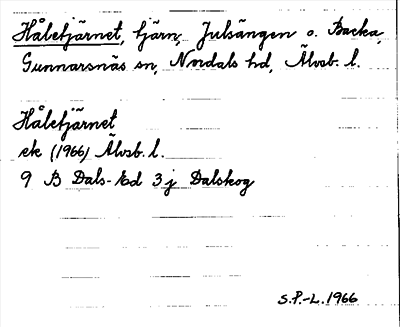 Håletjärnet, tjärn, Julsängen o. Backa,
Gunnarsnäs sn, Nordals hd, Älvsb. l.
Håletjärnet
ek (1966) Älvsb. l.
9 B Dals-Ed 3 j Dalskog
S.P.-L. 1966